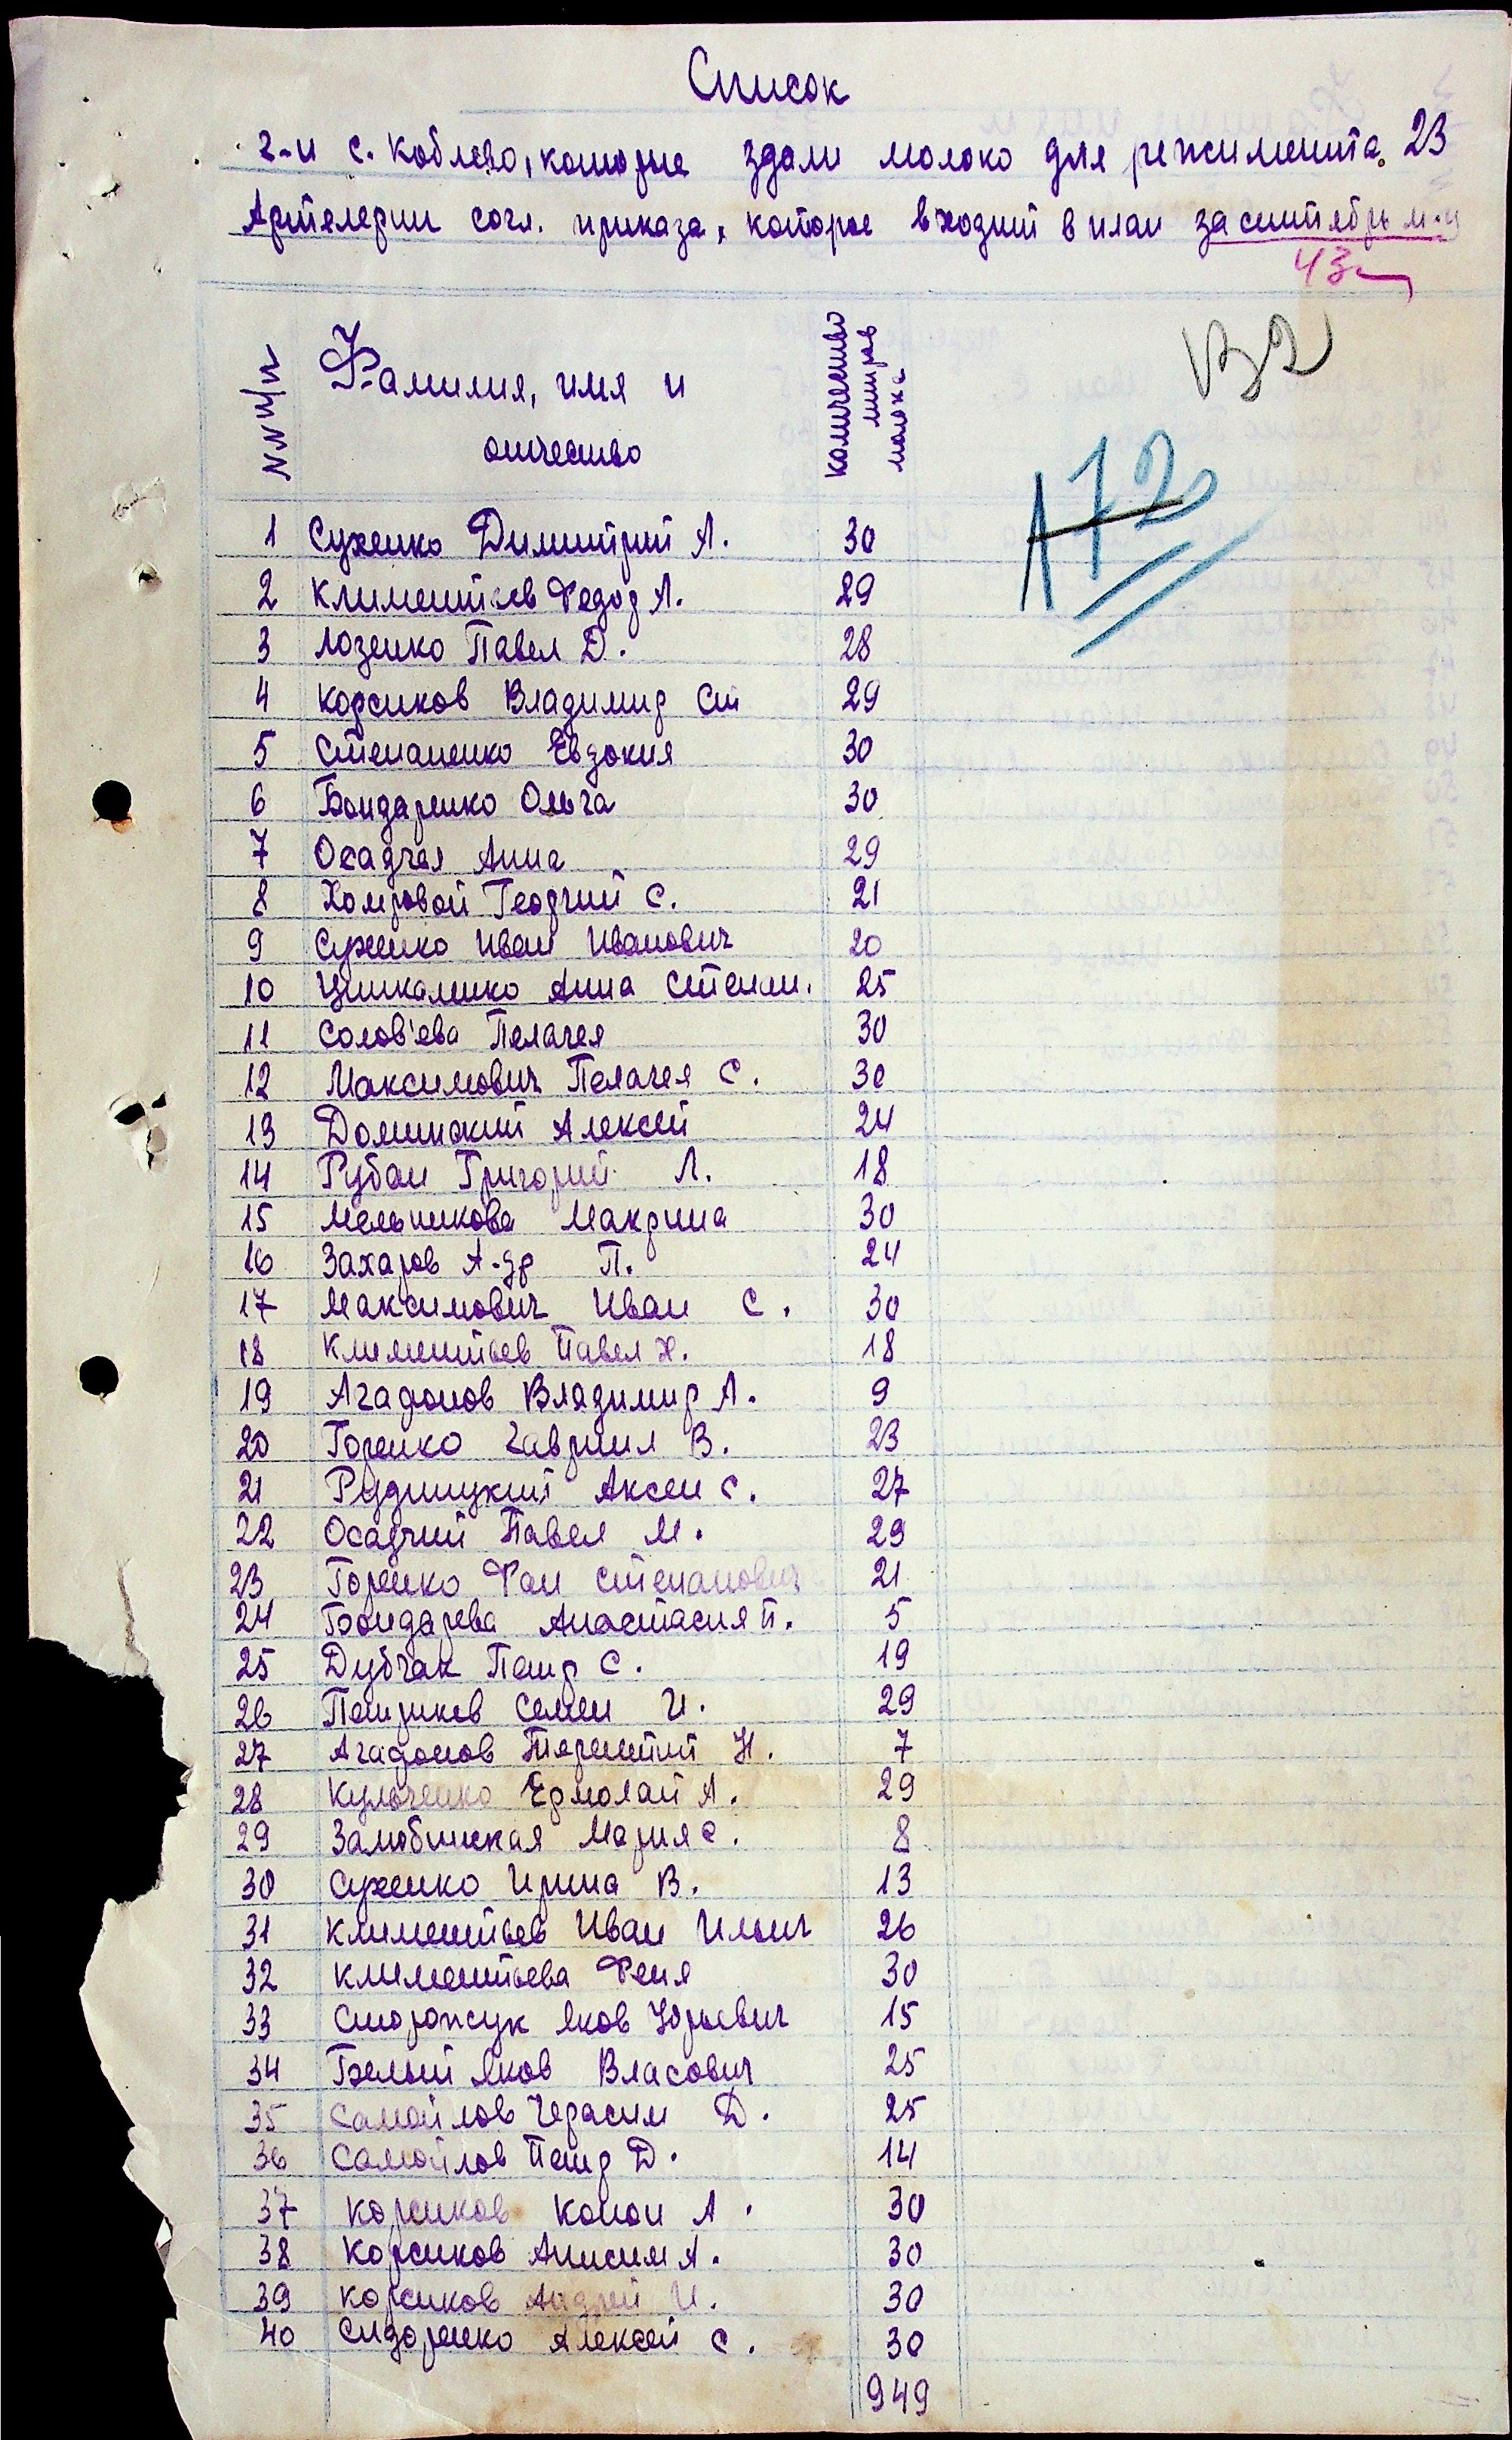 Список
г-и с. Коблево, которые здали молоко для режимента 23
Артелерии согл. приказа, которое входит в план за сентябрь м-ц
43г
В2
172
NN п/п Фамилия, имя и отчество количество литров молока
1 Суженко Димитрий А. 30
2 Климентьев Федор А. 29
3 Лозенко Павел Д. 28
4 Корсиков Владимир Ст 29
5 Степаненко Евдокия 30
6 Бондаренко Ольга 30
7 Осадчая Анна 29
8 Хомровой Георгий С. 21
9 Суженко Иван Иванович 20
10 Цымкаленко Анна Степан. 25
11 Солов'ева Пелагея 30
12 Максимович Пелагея С. 30
13 Доминский Алексей 24
14 Рубан Григорий Л. 18
15 Мельникова Макрина 30
16 Захаров А-др П. 24
17 Максимович Иван С. 30
18 Климентьев Павел Н. 18
19 Агафонов Владимир А. 9
20 Горенко Гавриил В. 23
21 Рудницкий Аксен С. 27
22 Осадчий Павел М. 29
23 Горенко Фан Степанович 21
24 Бондарева Анастасия П. 5
25 Дубчак Петр С. 19
26 Петриков Семен И. 29
27 Агафонов Терентий Н. 7
28 Кульченко Ермолай А. 29
29 Залюбинская Мария С. 8
30 Суженко Ирина В. 13
31 Климентьев Иван Ильич 26
32 Климентьева Феня 30
33 Сторожук Яков Юрьевич 15
34 Белый Яков Власович 25
35 Самойлов Герасим Д. 25
36 Самойлов Петр Д. 14
37 Корсиков Конон А. 30
38 Корсиков Анисим А. 30
39 Корсиков Андрей И. 30
40 Сидоренко Алексей С. 30
949